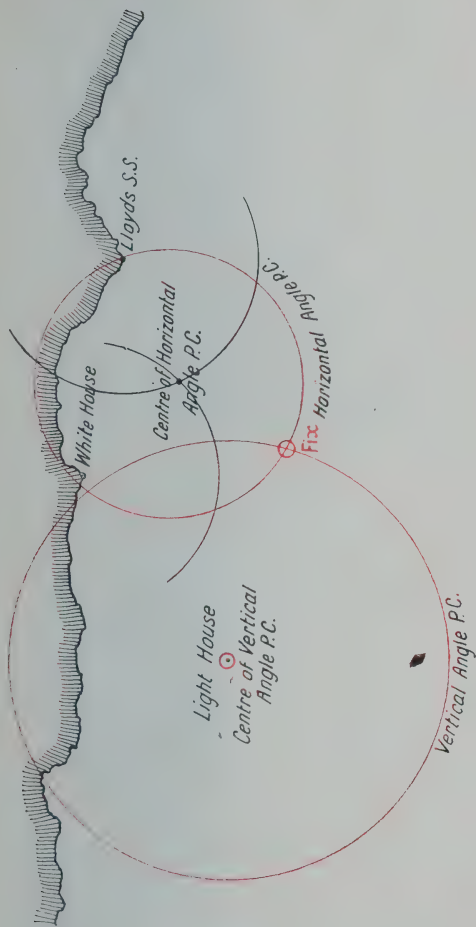 Lloyds S.S.
White House
Centre of Horizontal
Angle P.C.
Horizontal Angle P.C.
Fix
Light House
Centre of Vertical
Angle P.C.
Vertical Angle P.C.